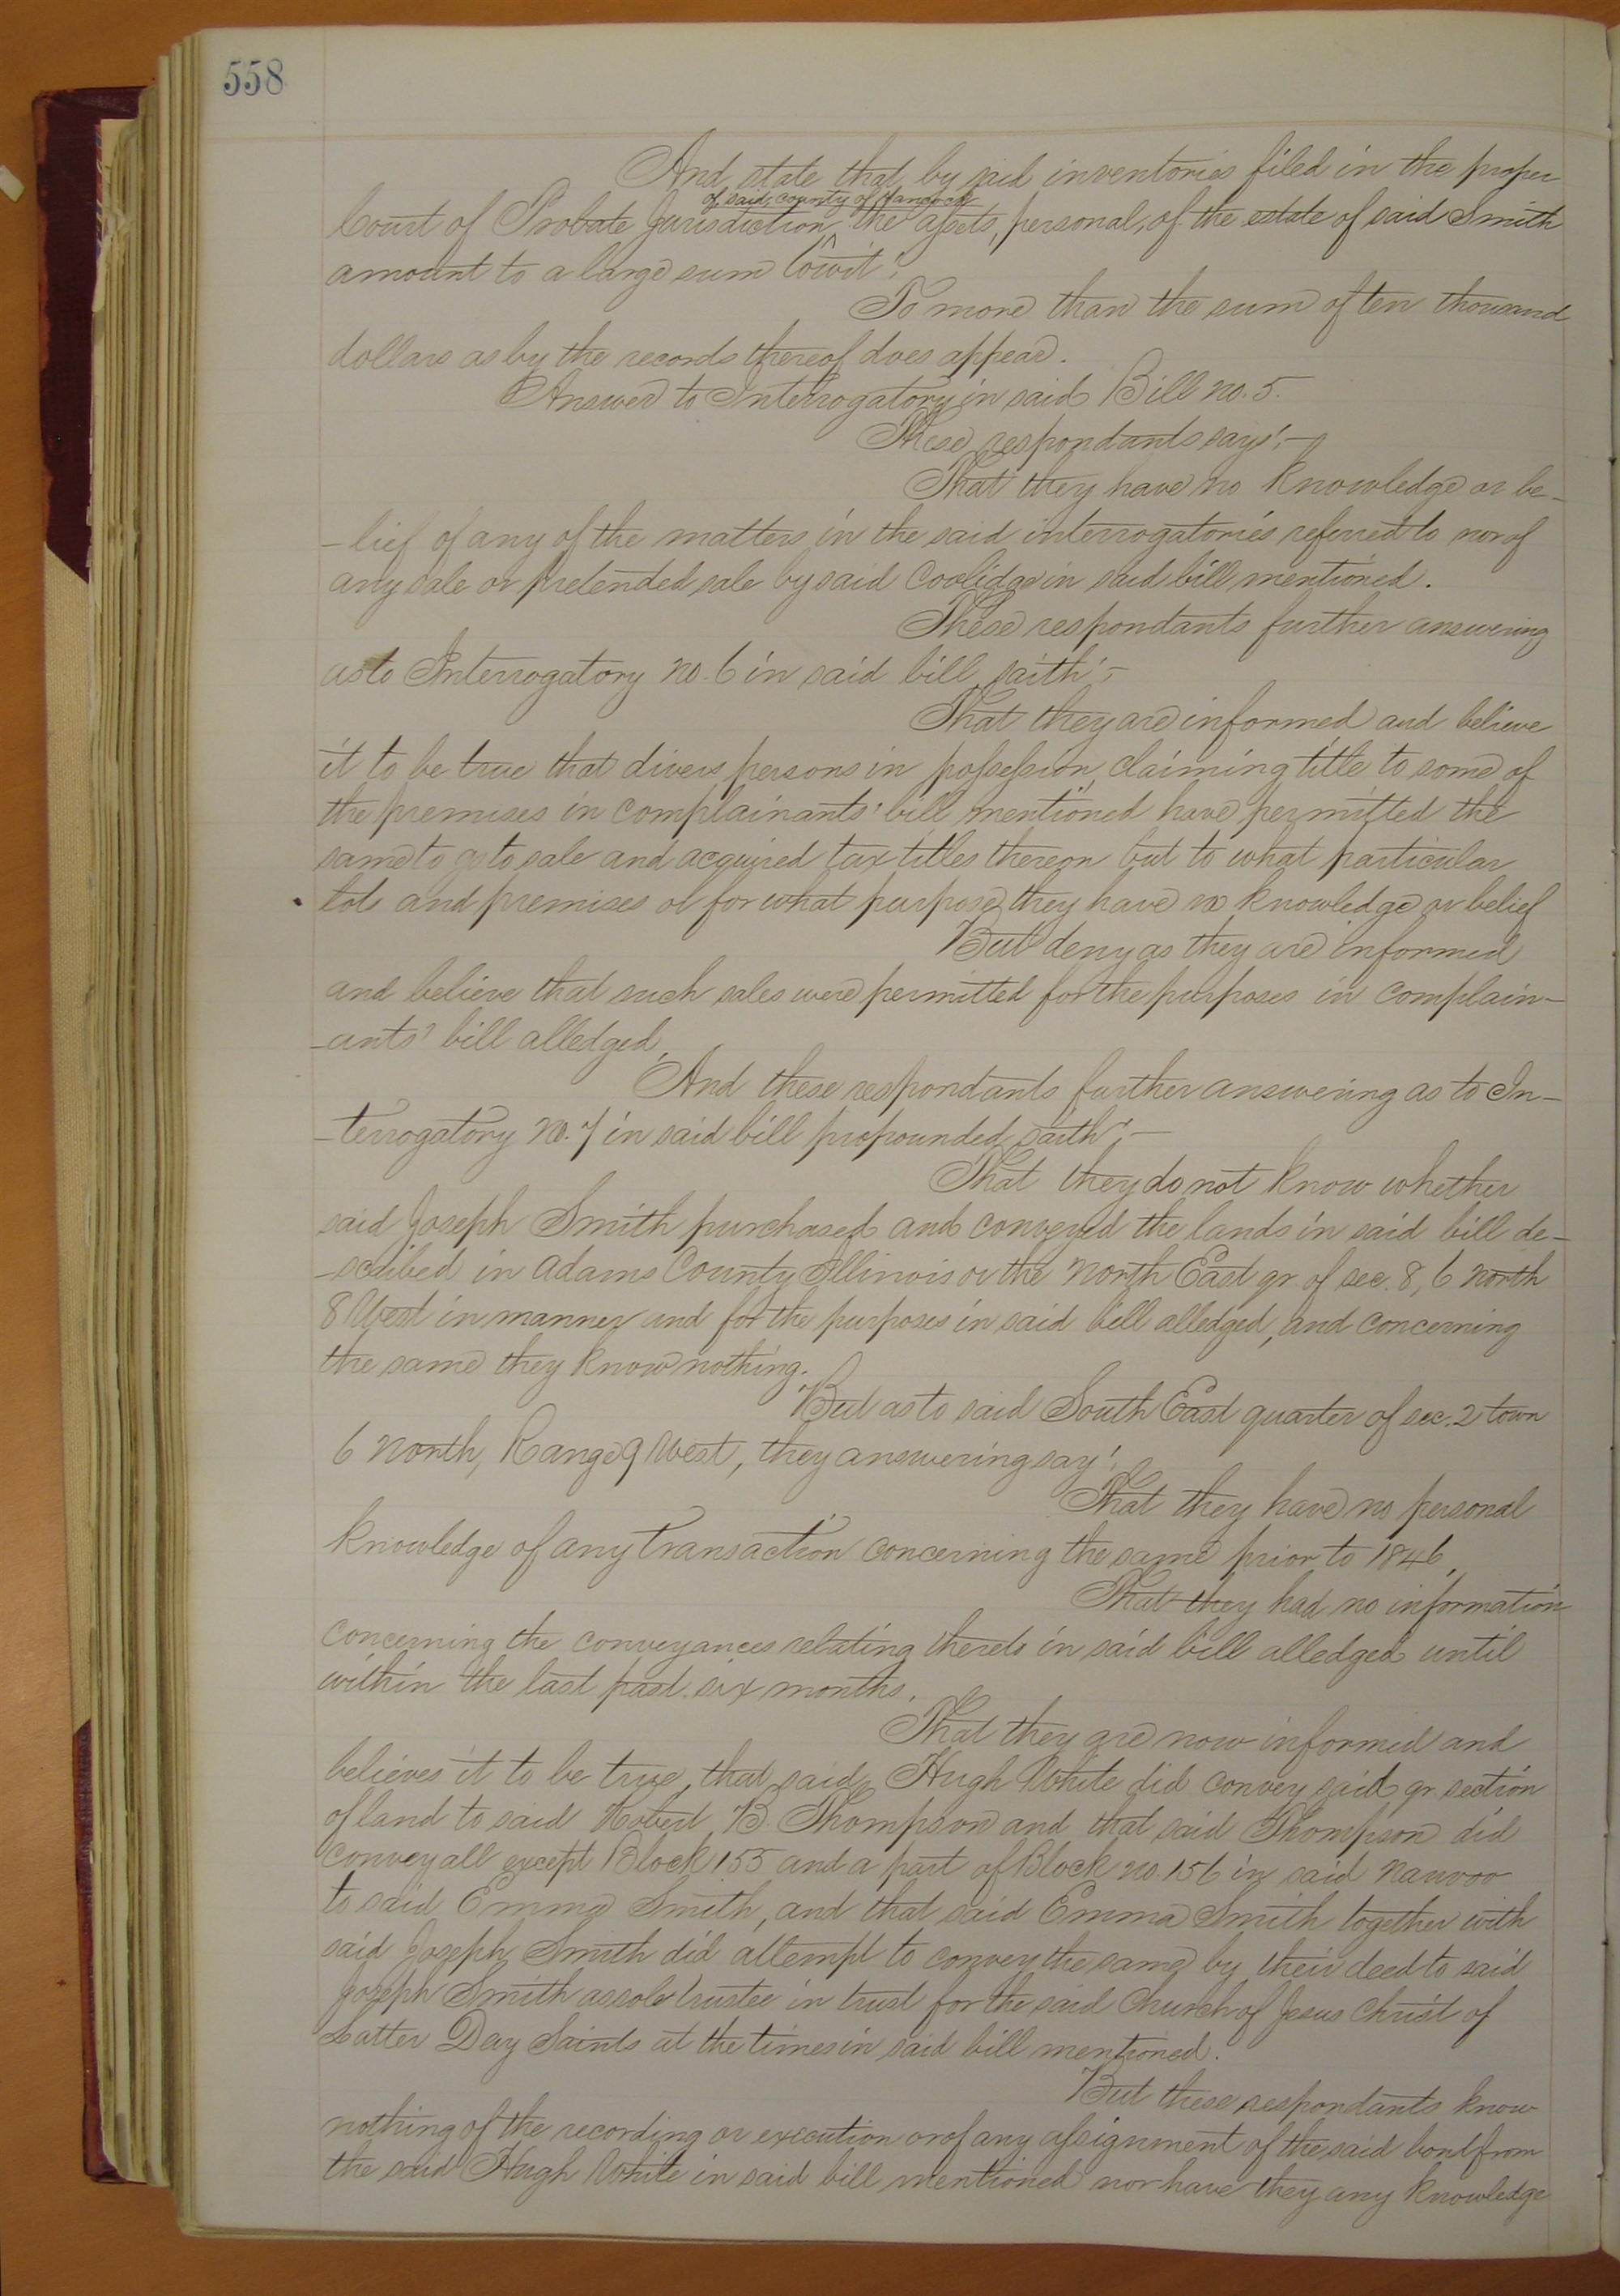 558
And state that by said inventories filed in the proper
of said county of Hancock
Court of Probate Jurisdiction ^ the assets, personal, of the estate of said Smith
amount to a large sum towit:
To more than the sum of ten thousand
dollars as by the records thereof does appear.
Answer to Interrogatory in said Bill no. 5.
These respondants says:—
That they have no knowledge or be-
-lief of any of the matters in the said interrogatories referred to nor of
any sale or pretended sale by said Coolidge in said bill mentioned.
These respondants further answering
as to Interrogatory no. 6 in said bill saith:—
That they are informed and believe
it to be true that divers persons in possession claiming title to some of
the premises in complainants' bill mentioned have permitted the
same to go to sale and acquired tax titles thereon but to what particular
lots and premises or for what purpose they have no knowledge or belief
But deny as they are informed
and believe that such sales were permitted for the purposes in complain-
-ants' bill alledged,
And these respondants further answering as to In-
-terrogatory no. 7 in said bill propounded saith:—
That they do not know whether
said Joseph Smith purchased and conveyed the lands in said bill de-
-scribed in Adams County Illinois or the North East qr. of sec. 8, 6 north
8 West in manner and for the purposes in said bill alledged, and concerning
the same they know nothing.
But as to said South East quarter of sec. 2 town
6 North, Range 9 West, they answering say:
That they have no personal
knowledge of any transaction concerning the same prior to 1846,
That they had no information
concerning the conveyances relating thereto in said bill alledged until
within the last past six months.
That they are now informed and
believes it to be true, that said Hugh White did convey said qr. section
of land to said Robert B. Thompson and that said Thompson did
convey all except Block 155 and a part of Block no. 156 in said nauvoo
to said Emma Smith, and that said Emma Smith together with
said Joseph Smith did attempt to convey the same by their deed to said
Joseph Smith as sole trustee in trust for the said Church of Jesus Christ of
Latter Day Saints at the times in said bill mentioned.
But these respondants know
nothing of the recording or execution or of any assignment of the said bond from
the said Hugh White in said bill mentioned nor have they any knowledge